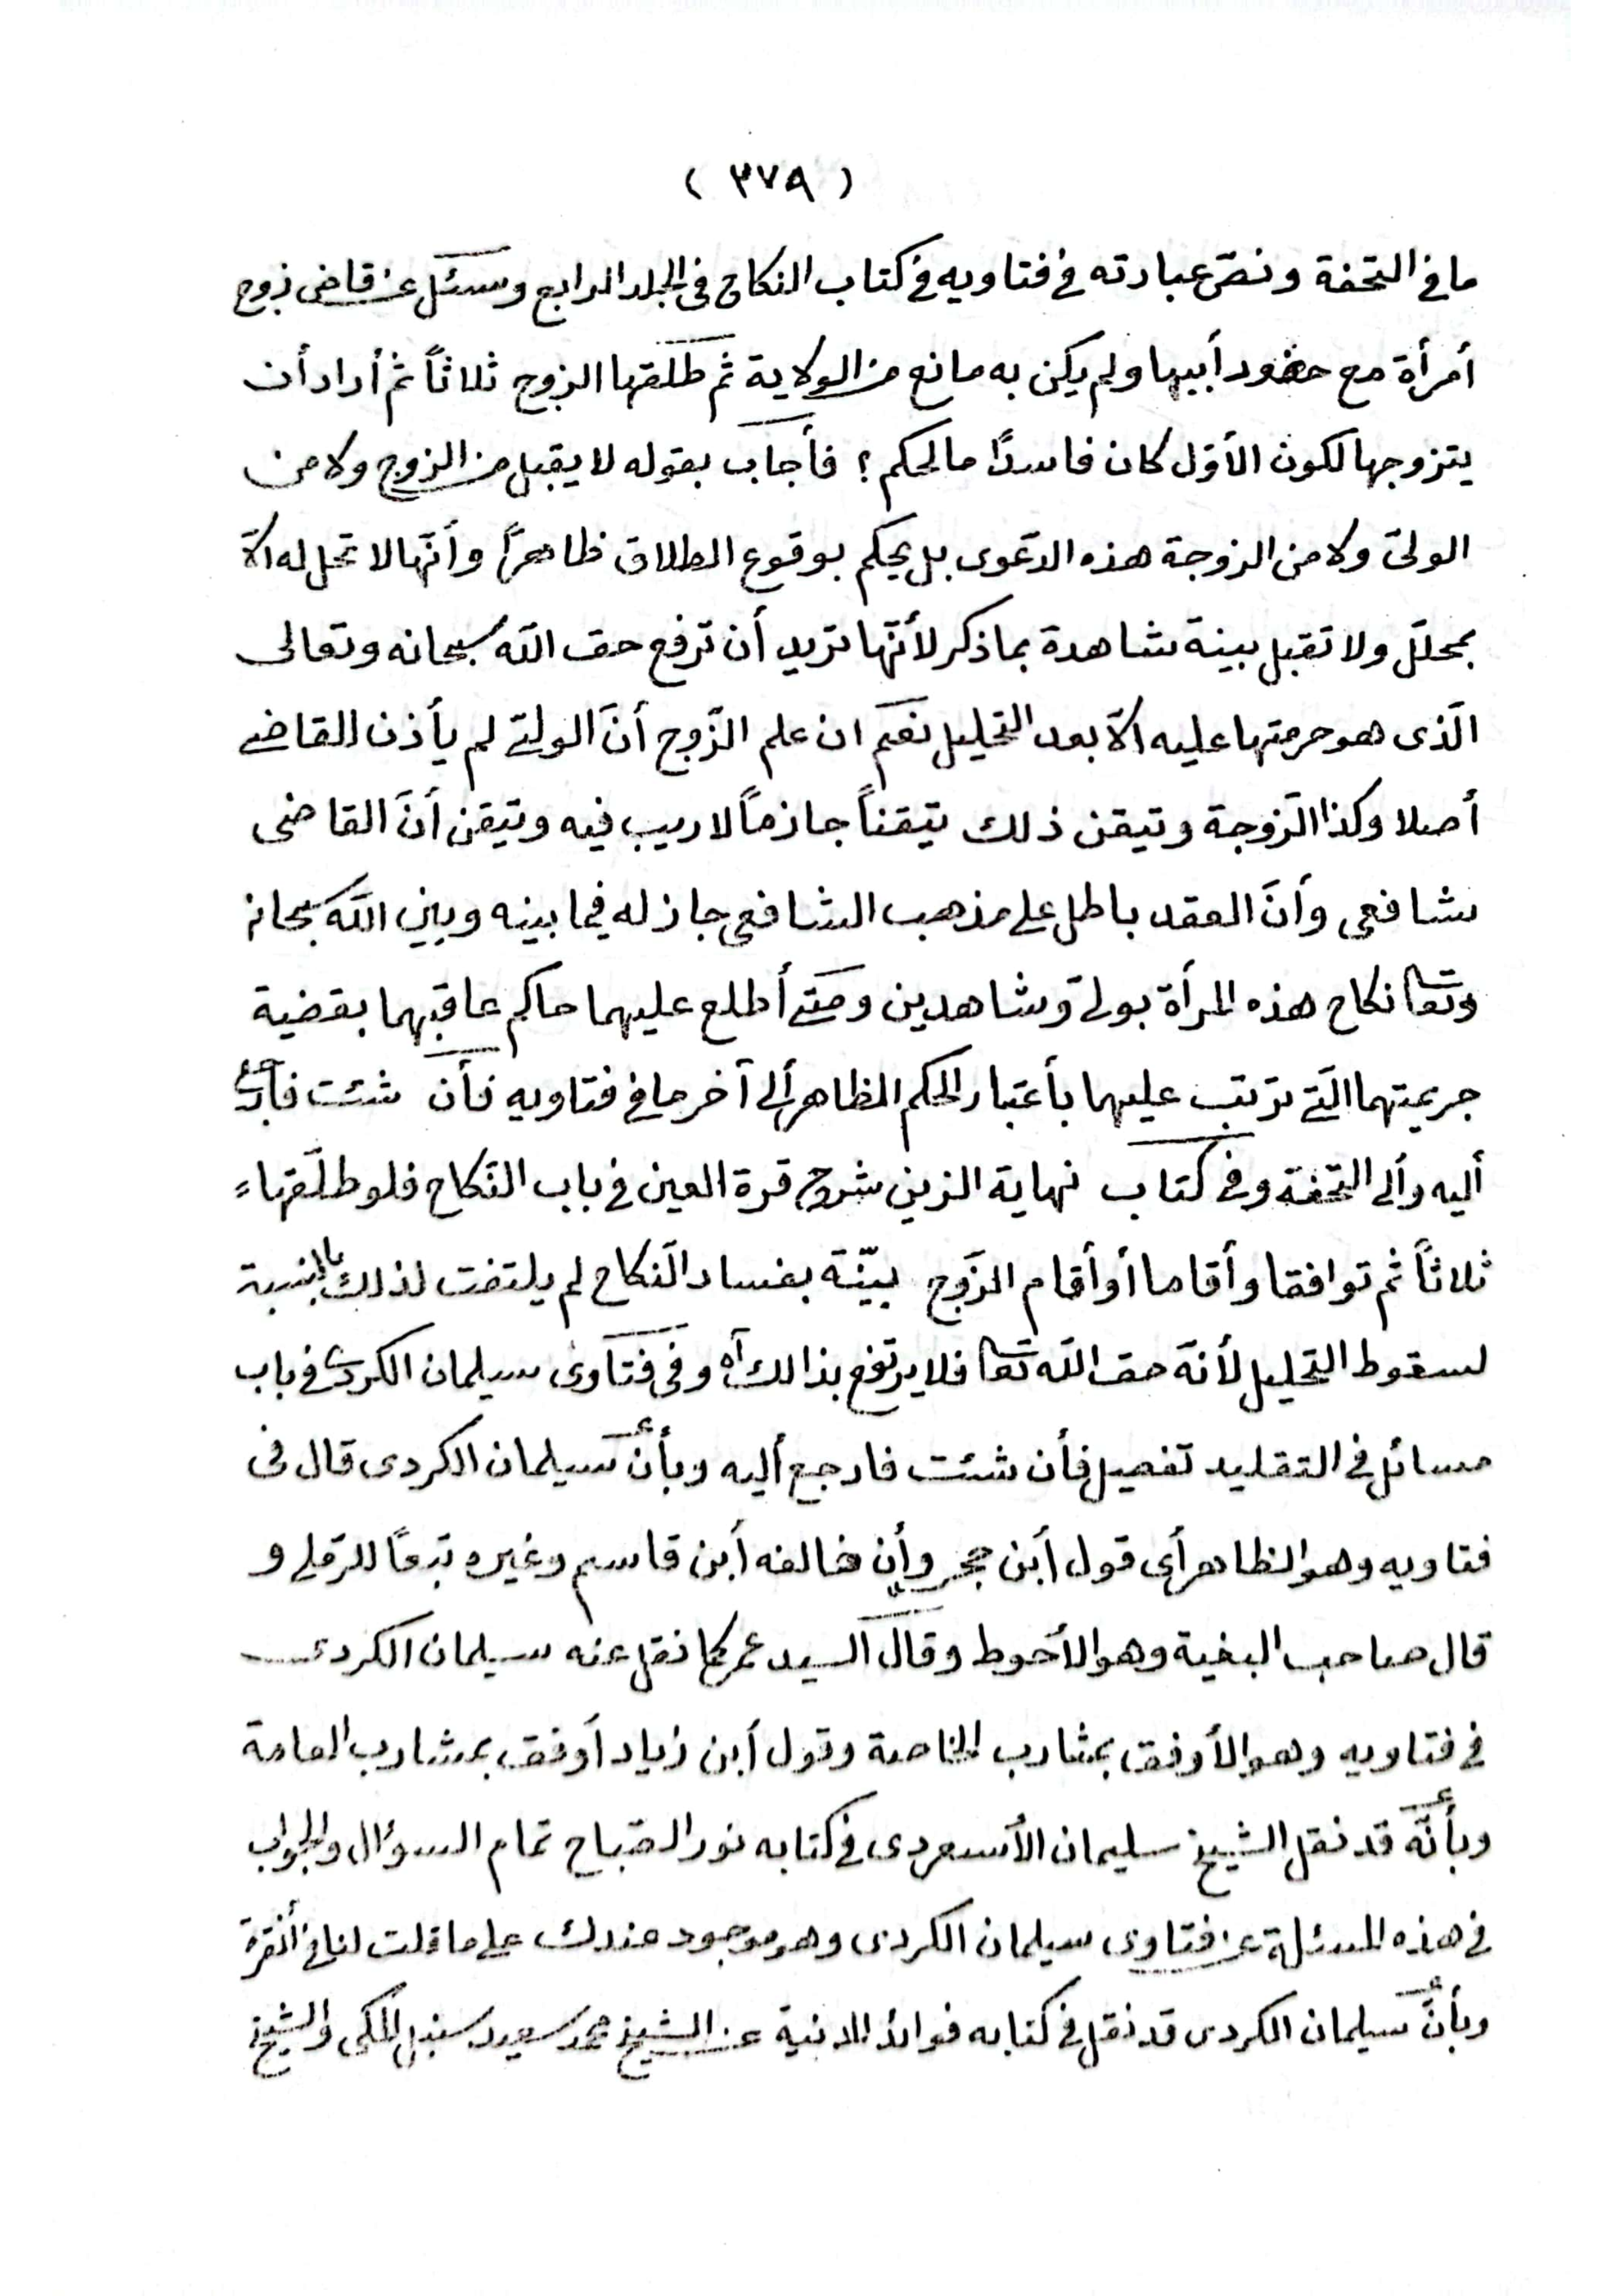 ( ٣٧٩ )
ما في التحفة ونصّ عبارته في فتاويه في كتاب النكاح في الجلد الرابع وسئل عن قاضى زوج
أمرأة مع حضور أبيها ولم يكن به مانع من الولاية ثم طلقها الزوج ثلاثاً ثم أراد أن
يتزوجها لكون الأوّل كان فاسدًا ما لحكم ؟ فأجاب بقوله لا يقبل من الزوج ولا من
الولىّ ولا من الزوجة هذه الدّعوى بل يحكم بوقوع الطلاق ظاهراً وأنّها لا تحل له الّا
بمحلّل ولا تقبل بينة شاهدة بما ذكر لأنّها تريد أن ترفع حق اللّه سبحانه وتعالى
الّذى هو حرمتها عليه الّا بعد التحليل نعم ان علم الزّوج أنّ الولىّ لم يأذن للقاضى
أصلا وكذا الزّوجة وتيقن ذلك تيقناً جازماً لا ريب فيه وتيقن أنّ القاضى
شافعى وأنّ العقد باطل على مذهب الشافعى جاز له فيما بينه وبين اللّه سبحانه
وتعا نكاح هذه المرأة بولىّ وشاهدين ومتى أطلع عليهما حاكم عاقبهما بقضية
جريمتهما الّتى ترتب عليهما بأعتبار الحكم الظاهر ألى آخر ما في فتاويه فأن شئت فأرجع
أليه وألى التحفة وفي كتاب نهاية الزين شرح قرة العين في باب النّكاح فلو طلّقها
ثلاثاً ثم توافقا وأقاما أو أقام الزّوج بيّنة بفساد النّكاح لم يلتفت لذلك بالنسبة
لسقوط التحليل لأنّه حق اللّه تعا فلا يرتفع بذالك أه وفي فتاوى سيلمان الكردى في باب
مسائل في التقليد تفصيل فأن شئت فارجع أليه وبأنّ سيلمان الكردى قال في
فتاويه وهو الظاهر أى قول أبن حجر وأن خالفه أبن قاسم وغيره تبعًا للرّملى و
قال صاحب البغية وهو الأحوط وقال السيد عمر كما نقل عنه سيلمان الكردى
في فتاويه وهو الأوفق بمشارب الخاصة وقول أبن زياد أوفق بمشارب العامة
وبأنّه قد نقل الشيخ سليمان الأسعردى في كتابه نور الصّباح تمام السوال والجواب
في هذه المسئلة عن فتاوى سيلمان الكردى وهو موجود عندك على ما قلت لنا في أنقرة
وبأنّ سيلمان الكردى قد نقل في كتابه فوائد المدنية عن الشيخ محمد سعيد سنبل المكى والشيخ